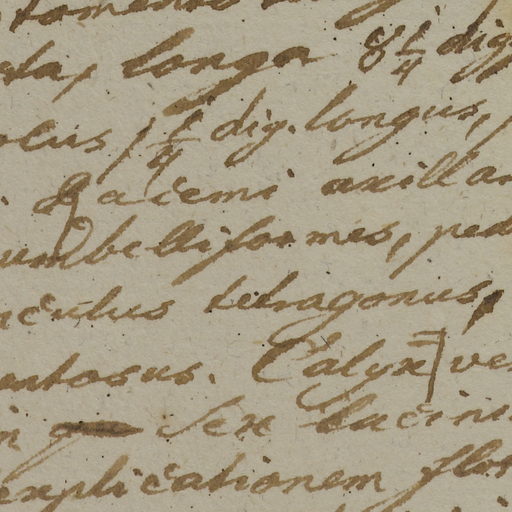 tomento
ta, longa 8 1/4 dig
olus 1 1/4 dig. longus,
Racemi axillar
umbelliformes, ped
nculus tetragonus,
entosus. Calyx ve
in sex lacini
explicationem flor